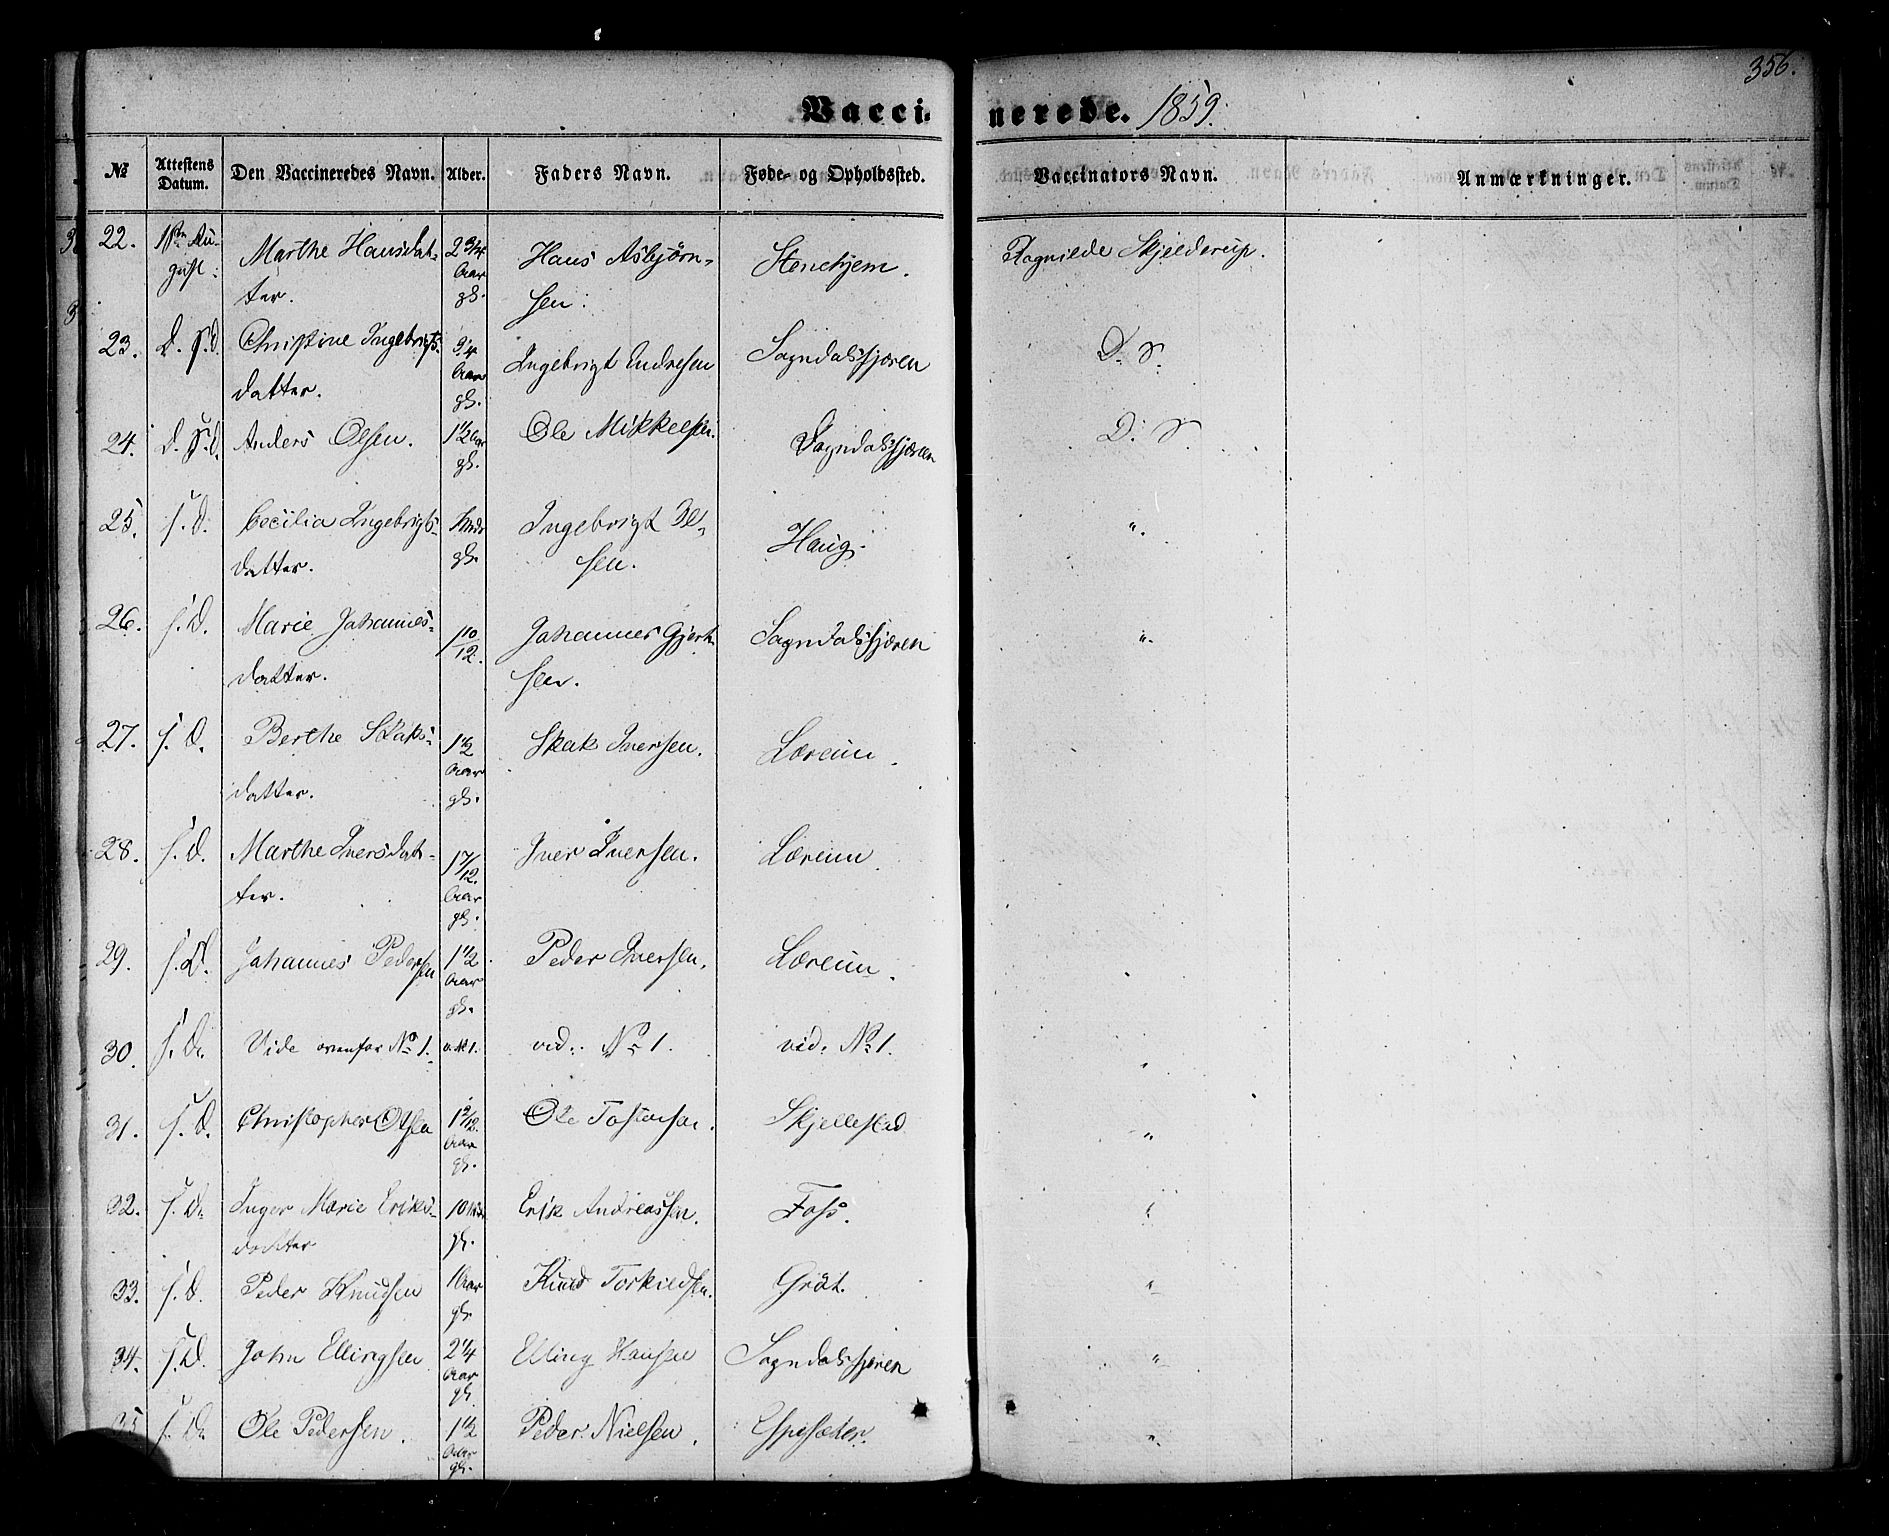 356.
Vaccinerede. 1859.
№ Attestens Datum. Den Vaccineredes Navn. Alder. Faders Navn. Føde- og Opholdssted. Vaccinators Navn. Anmærkninger.
22. August: Marthe Hansdatter. 2 3/4 Aar gl. Hans Asbjørnsen. Stenehjem. Ragnilde Skjelderup.
23. D. S. d. Christine Ingebrigtsdatter. Aar gl. Ingebrigt Endresen Sogndalsfjæren D. S.
24. D. S. d. Anders Olsen. 1 1/2 Aar gl. Ole Mikkelsen. Sogndalsfjæren D. S.
25. S. D. Cecilia Ingebrigtsdatter. gl. Ingebrigt Haug. ".
26. S. D. Marie Johannesdatter. 1 10/12. Johannes Gjertsen. Sogndalsfjæren ".
27. S. D. Berthe Skaksdatter. 1 1/2 Aar gl. Skak Iversen. Læreim.
28. S. D. Marthe Iversdatter. 1 7/12. Aar gl. Iver Iversen. Læreim.
29. S. D. Johannes Pedersen 1 1/2 Aar gl. Peder Iversen. Læreim.
30. S. D. Vide ovenfor No 1. v. № 1. vid: No 1. vid: No 1. "
31. S. D. Christopher Olsen Aar gl. Ole Tostensen. Skjellestad "
32. S. D. Inger Marie Eriksdatter 10 gl. Erik Andreassen. Foss. "
33. S. D. Peder Knudsen 1 Aar gl. Knud Torkildsen. Grøt. "
34. S. D. John Ellingsen 2 1/4 Aar gl. Elling Hansen Sogndalsfjæren "
35 S. D. Ole Pedersen. 1 1/2 Aar gl. Peder Nielsen. Espesæter. "